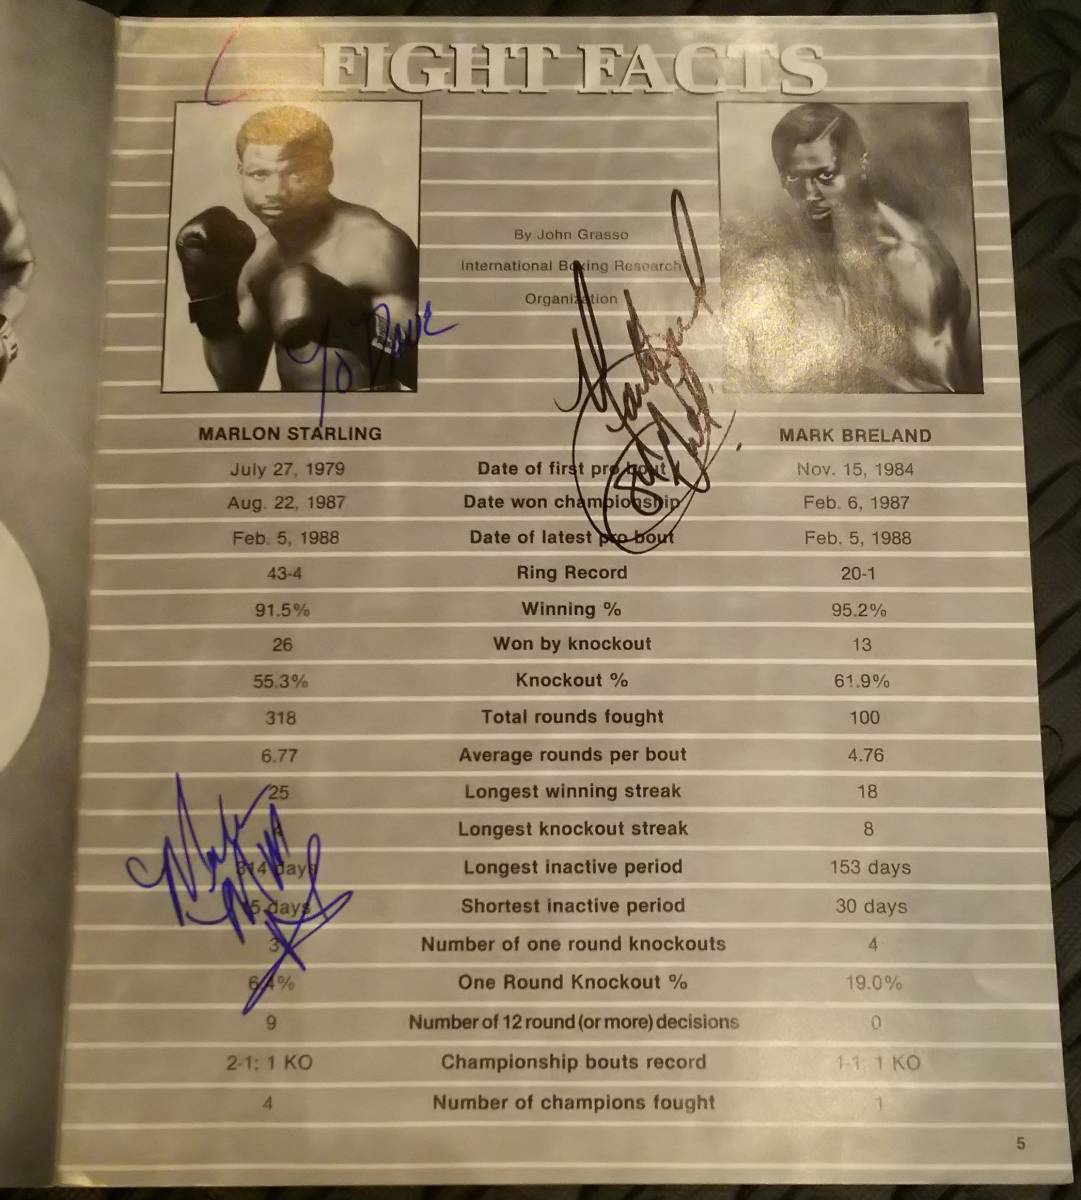 FIGHT FACTS
By John Grasso
International Boxing Research
Organization
To Dave
MARLON STARLING MARK BRELAND
July 27, 1979 Date of first pro bout Nov. 15, 1984
Aug. 22, 1987 Date won championship Feb. 6, 1987
Feb. 5, 1988 Date of latest pro bout Feb. 5, 1988
43-4 Ring Record 20-1
91.5% Winning % 95.2%
26 Won by knockout 13
55.3% Knockout % 61.9%
318 Total rounds fought 100
6.77 Average rounds per bout 4.76
25 Longest winning streak 18
4 Longest knockout streak 8
314 days Longest inactive period 153 days
15 days Shortest inactive period 30 days
3 Number of one round knockouts 4
6.4% One Round Knockout % 19.0%
9 Number of 12 round (or more) decisions 0
2-1; 1 KO Championship bouts record 1-1; 1 KO
4 Number of champions fought 1
5